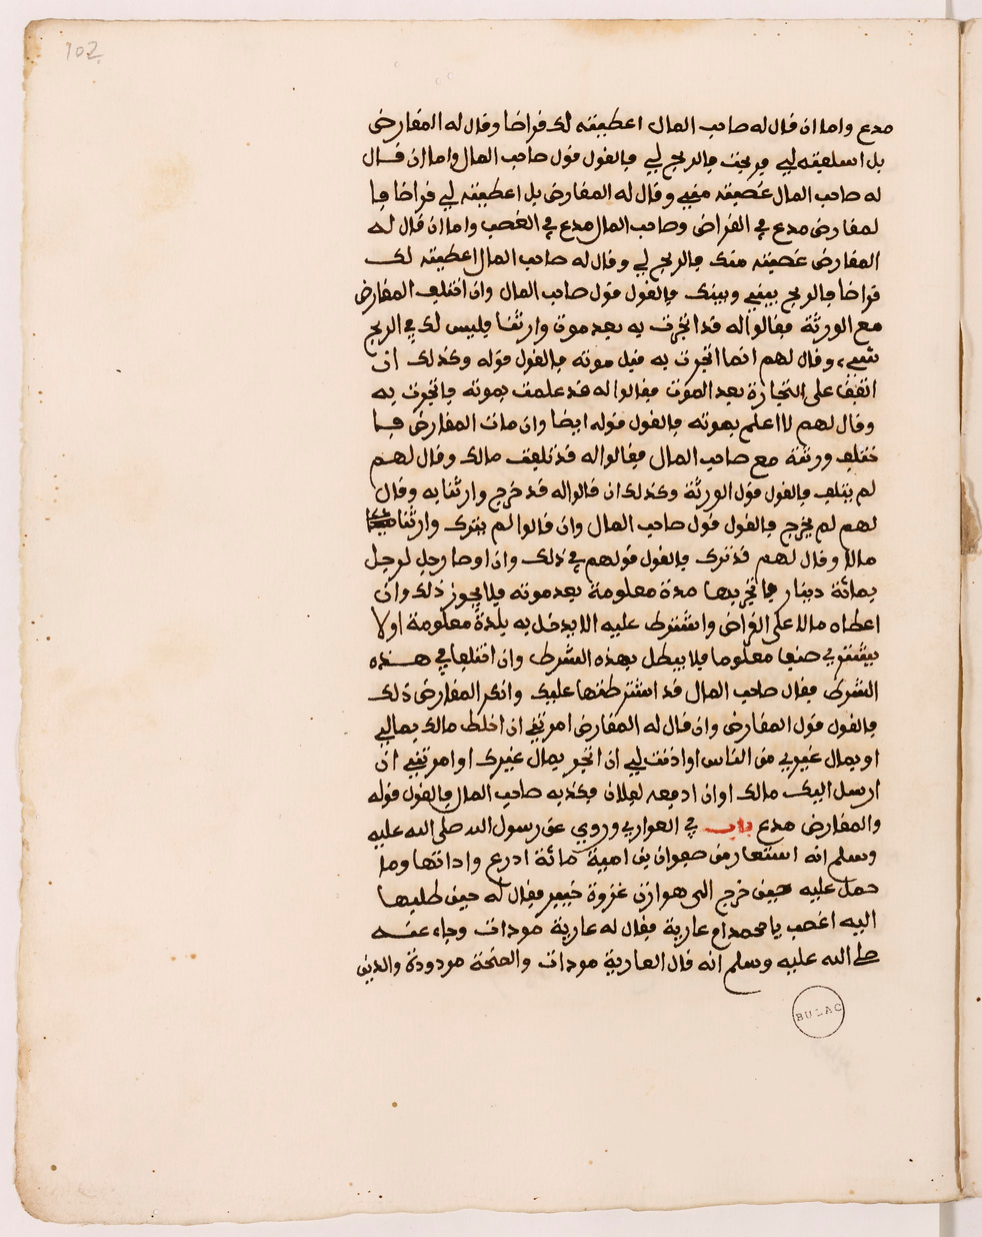 102
مدع واما ان قال له صاحب المال اعطيته لك قراضا وقال له المقارض
بل اسلفته لي فربحت فالربح لي فالقول قول صاحب المال واما ان قال
له صاحب المال غصبته مني وقال له المقارض بل اعطيته لي قراضا فا
لمقارض مدع في القراض وصاحب المال مدع في الغصب واما ان قال له
المقارض غصبته منك فالربح لي وقال له صاحب المال اعطيته لك
قراضا فالربح بيني وبينك فالقول قول صاحب المال وان اختلف المقارض
مع الورثة فقالوا له قد اتجرت به بعد موت وارثنا فليس لك في الربح
شيء وقال لهم انما اتجرت به قبل موته فالقول قوله وكذلك ان
اتفق على التجارة بعد الموت فقالوا له قد علمت بموته فاتجرت به
وقال لهم لا اعلم بموته فالقول قوله ايضا وان مات المقارض فا
ختلف ورثته مع صاحب المال فقالوا له قد تلف مالك وقال لهم
لم يتلف فالقول قول الورثة وكذلك ان قالوا له قد خرج وارثنا به وقال
لهم لم يخرج فالقول قول صاحب المال وان قالوا لم يترك وارثنا
مالا وقال لهم قد ترك فالقول قولهم في ذلك وان اوصا رجل لرجل
بمائة دينار فاتجر بها مدة معلومة بعد موته فلا يجوز ذلك وان
اعطاه مالا على القراض واشترط عليه الا يدخل به بلدة معلومة اولا
يشتري صنفا معلوما فلا يبطل بهذه الشرط وان اختلفا في هذه
الشرط فقال صاحب المال قد اشترطتها عليك وانكر المقارض ذلك
فالقول قول المقارض وان قال له المقارض امرتني ان اخلط مالك بمالي
او بمال غيري من الناس او اذنت لي ان اتجر بمال غيرك او امرتني ان
ارسل اليك مالك او ان ادفعه لفلان فكذبه صاحب المال فالقول قوله
والمقارض مدع باب في العواري وروي عن رسول الله صلى الله عليه
وسلم انه استعار من صفوان بن امية مائة ادرع واداتها وما
حمل عليه حين خرج الى هوازن غزوة خيبر فقال له حين طلبها
اليه اغصب يا محمد ام عارية فقال له عارية مودات وجاء عنه
صلى الله عليه وسلم انه قال العارية مودات والمنحة مردودة والدين
BULAC